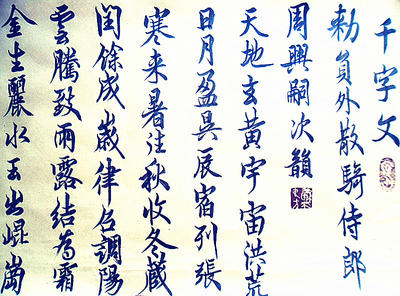 千字文
勅員外散騎侍郎
周興嗣次韻
天地玄黄宇宙洪荒
日月盈昃辰宿列張
寒来暑往秋收冬藏
閏餘成歳律召調陽
雲騰致雨露結為霜
金生麗水玉出崐崗